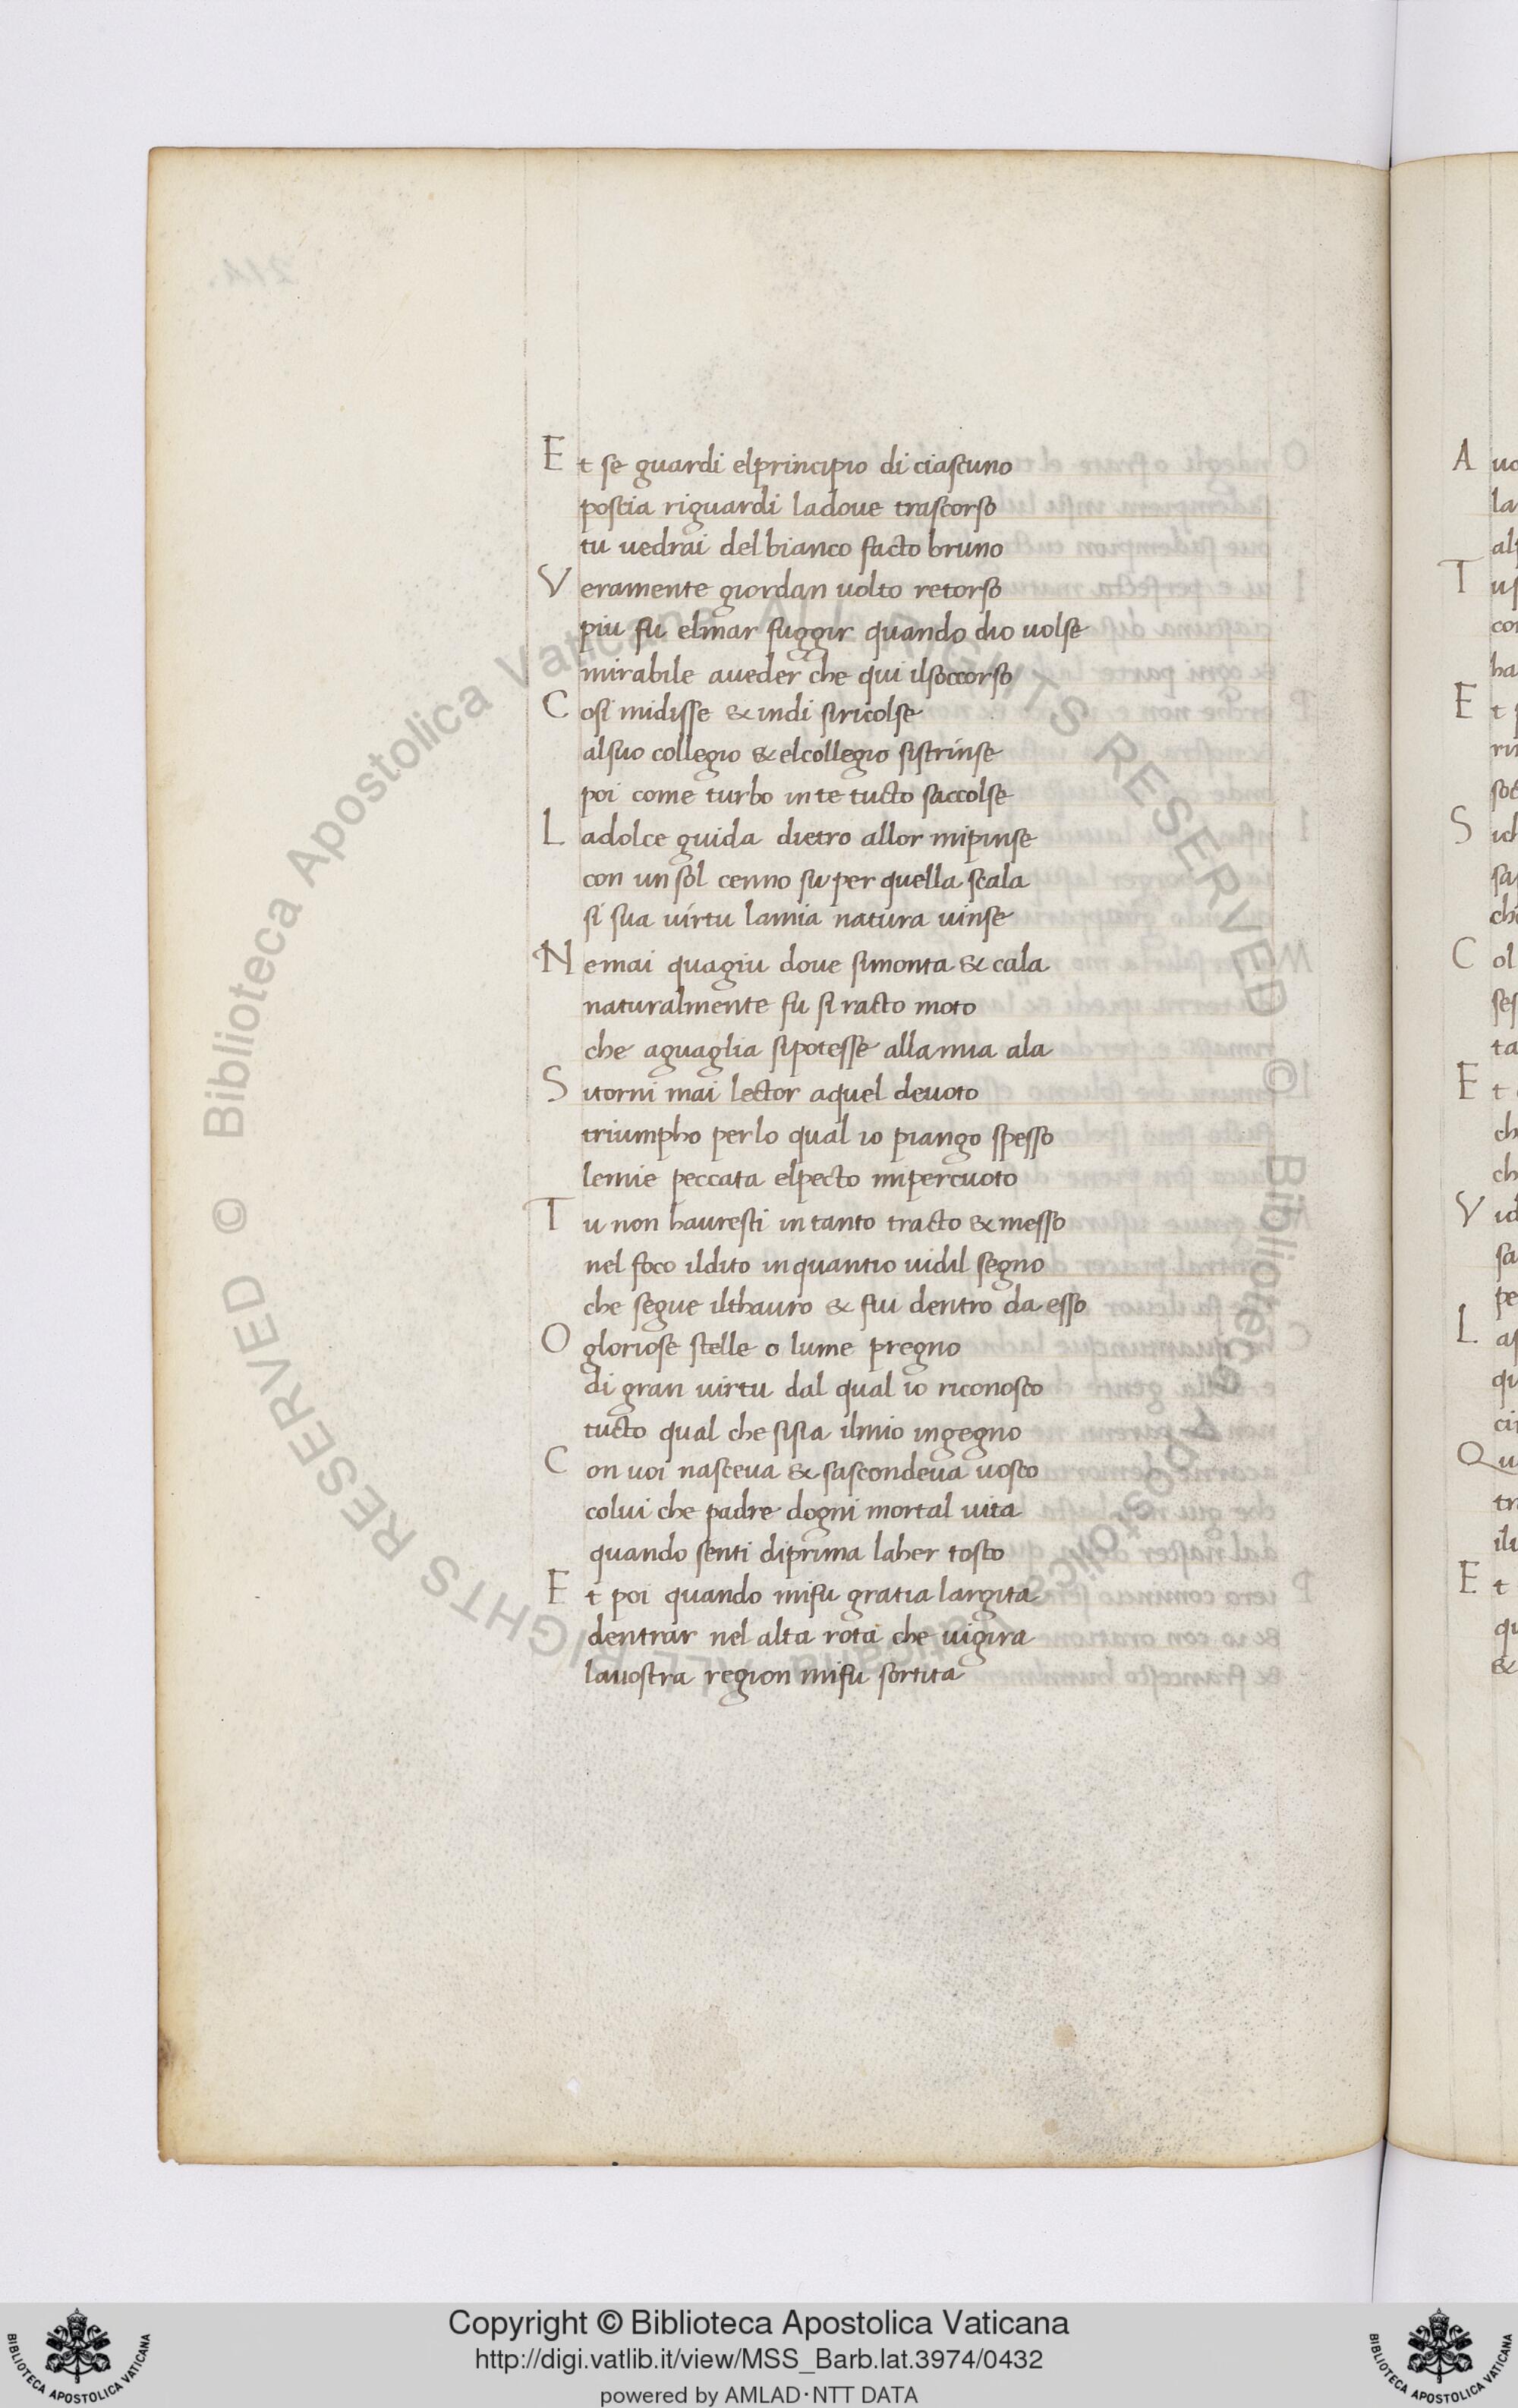 Et se guardi elprincipio di ciascuno
poscia riguardi ladoue trascorso
tu uedrai del bianco facto bruno
Veramente giordan uolto retorso
piu fu elmar fuggir quando dio uolse
mirabile aueder che qui ilsoccorso
Cosi midisse & indi siricolse
alsuo collegio & elcollegio sistrinse
poi come turbo in te tucto saccolse
Ladolce guida dietro allor mipinse
con un sol cenno su per quella scala
si sua uirtu lamia natura uinse
Nemai quagiu doue simonta & cala
naturalmente fu si racto moto
che aguaglia sipotesse alla mia ala
Sitorni mai lector aquel deuoto
triumpho perlo qual io piango spesso
lemie peccata elpecto mipercuoto
Tu non hauresti in tanto tracto & messo
nel foco ildito in quantio uidil segno
che segue ilthauro & fui dentro da esso
O gloriose stelle o lume pregno
di gran uirtu dal qual io riconosco
tucto qual che sisia ilmio ingegno
Con uoi nasceua & sascondeua uosco
colui che padre dogni mortal uita
quando senti diprima laher tosco
Et poi quando mifu gratia largita
dentrar nel alta rota che uigira
lauostra region mifu sortita
Copyright © Biblioteca Apostolica Vaticana
http://digi.vatlib.it/view/MSS_Barb.lat.3974/0432
powered by AMLAD·NTT DATA